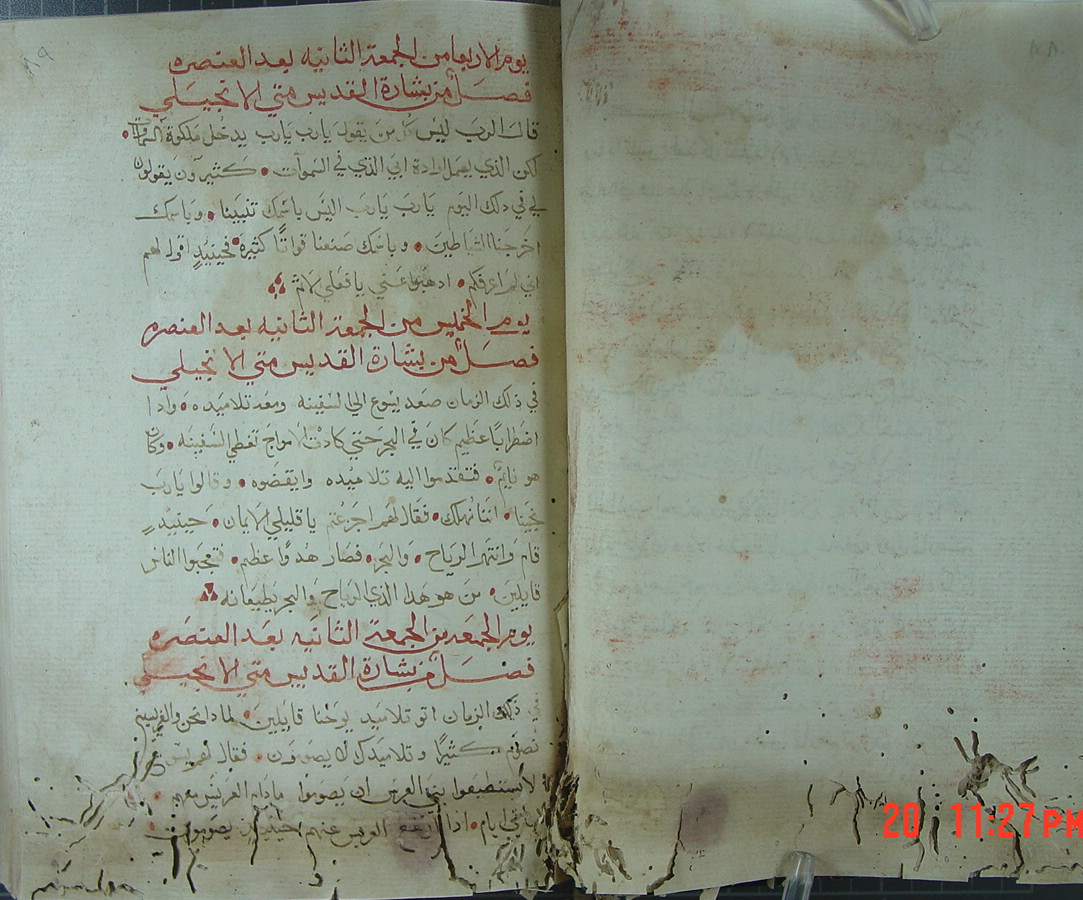 ٨٩
يوم الاربعا من الجمعة الثانيه بعد العنصره
فصل من بشارة القديس متي الانجيلي
قال الرب ليس كل من يقول يارب يارب يدخل ملكوة السموات
لكن الذي يعمل ارادة ابي الذي في السموات كثيرون يقولون
لي في ذلك اليوم يارب يارب اليس باسمك تنبينا وباسمك
اخرجنا الشياطين وباسمك صنعنا قواتا كثيره فحينيد اقول لهم
اني لم اعرفكم ادهبوا عني يا فعلي الاثم
يوم الخميس من الجمعة الثانيه بعد العنصره
فصل من بشارة القديس متي الانجيلي
في ذلك الزمان صعد يسوع الي السفينه ومعه تلاميده وادا
اضطرابا عظيم كان في البحر حتي كادت الامواج تغطي السفينه وكان
هو نايم فتقدموا اليه تلاميده وايقضوه وقالوا يارب
نجينا اننا نهلك فقال لهم اجزعتم يا قليلي الايمان حينيد
قام وانتهر الرياح والبحر فصار هدوا عظم فتعجبوا الناس
قايلين من هو هدا الذي الرياح والبحر يطيعانه
يوم الجمعه من الجمعة الثانيه بعد العنصره
فصل من بشارة القديس متي الانجيلي
في ذلك الزمان اتو تلاميد يوحنا قايلين لمادا نحن والفريسين
نصوم كثيرا وتلاميدك لا يصومون فقال لهم
لا يستطيعوا بني العرس ان يصوموا مادام العريس معهم
ستاتي ايام ادا ارتفع العريس عنهم حينيد يصومون
20 11:27PM